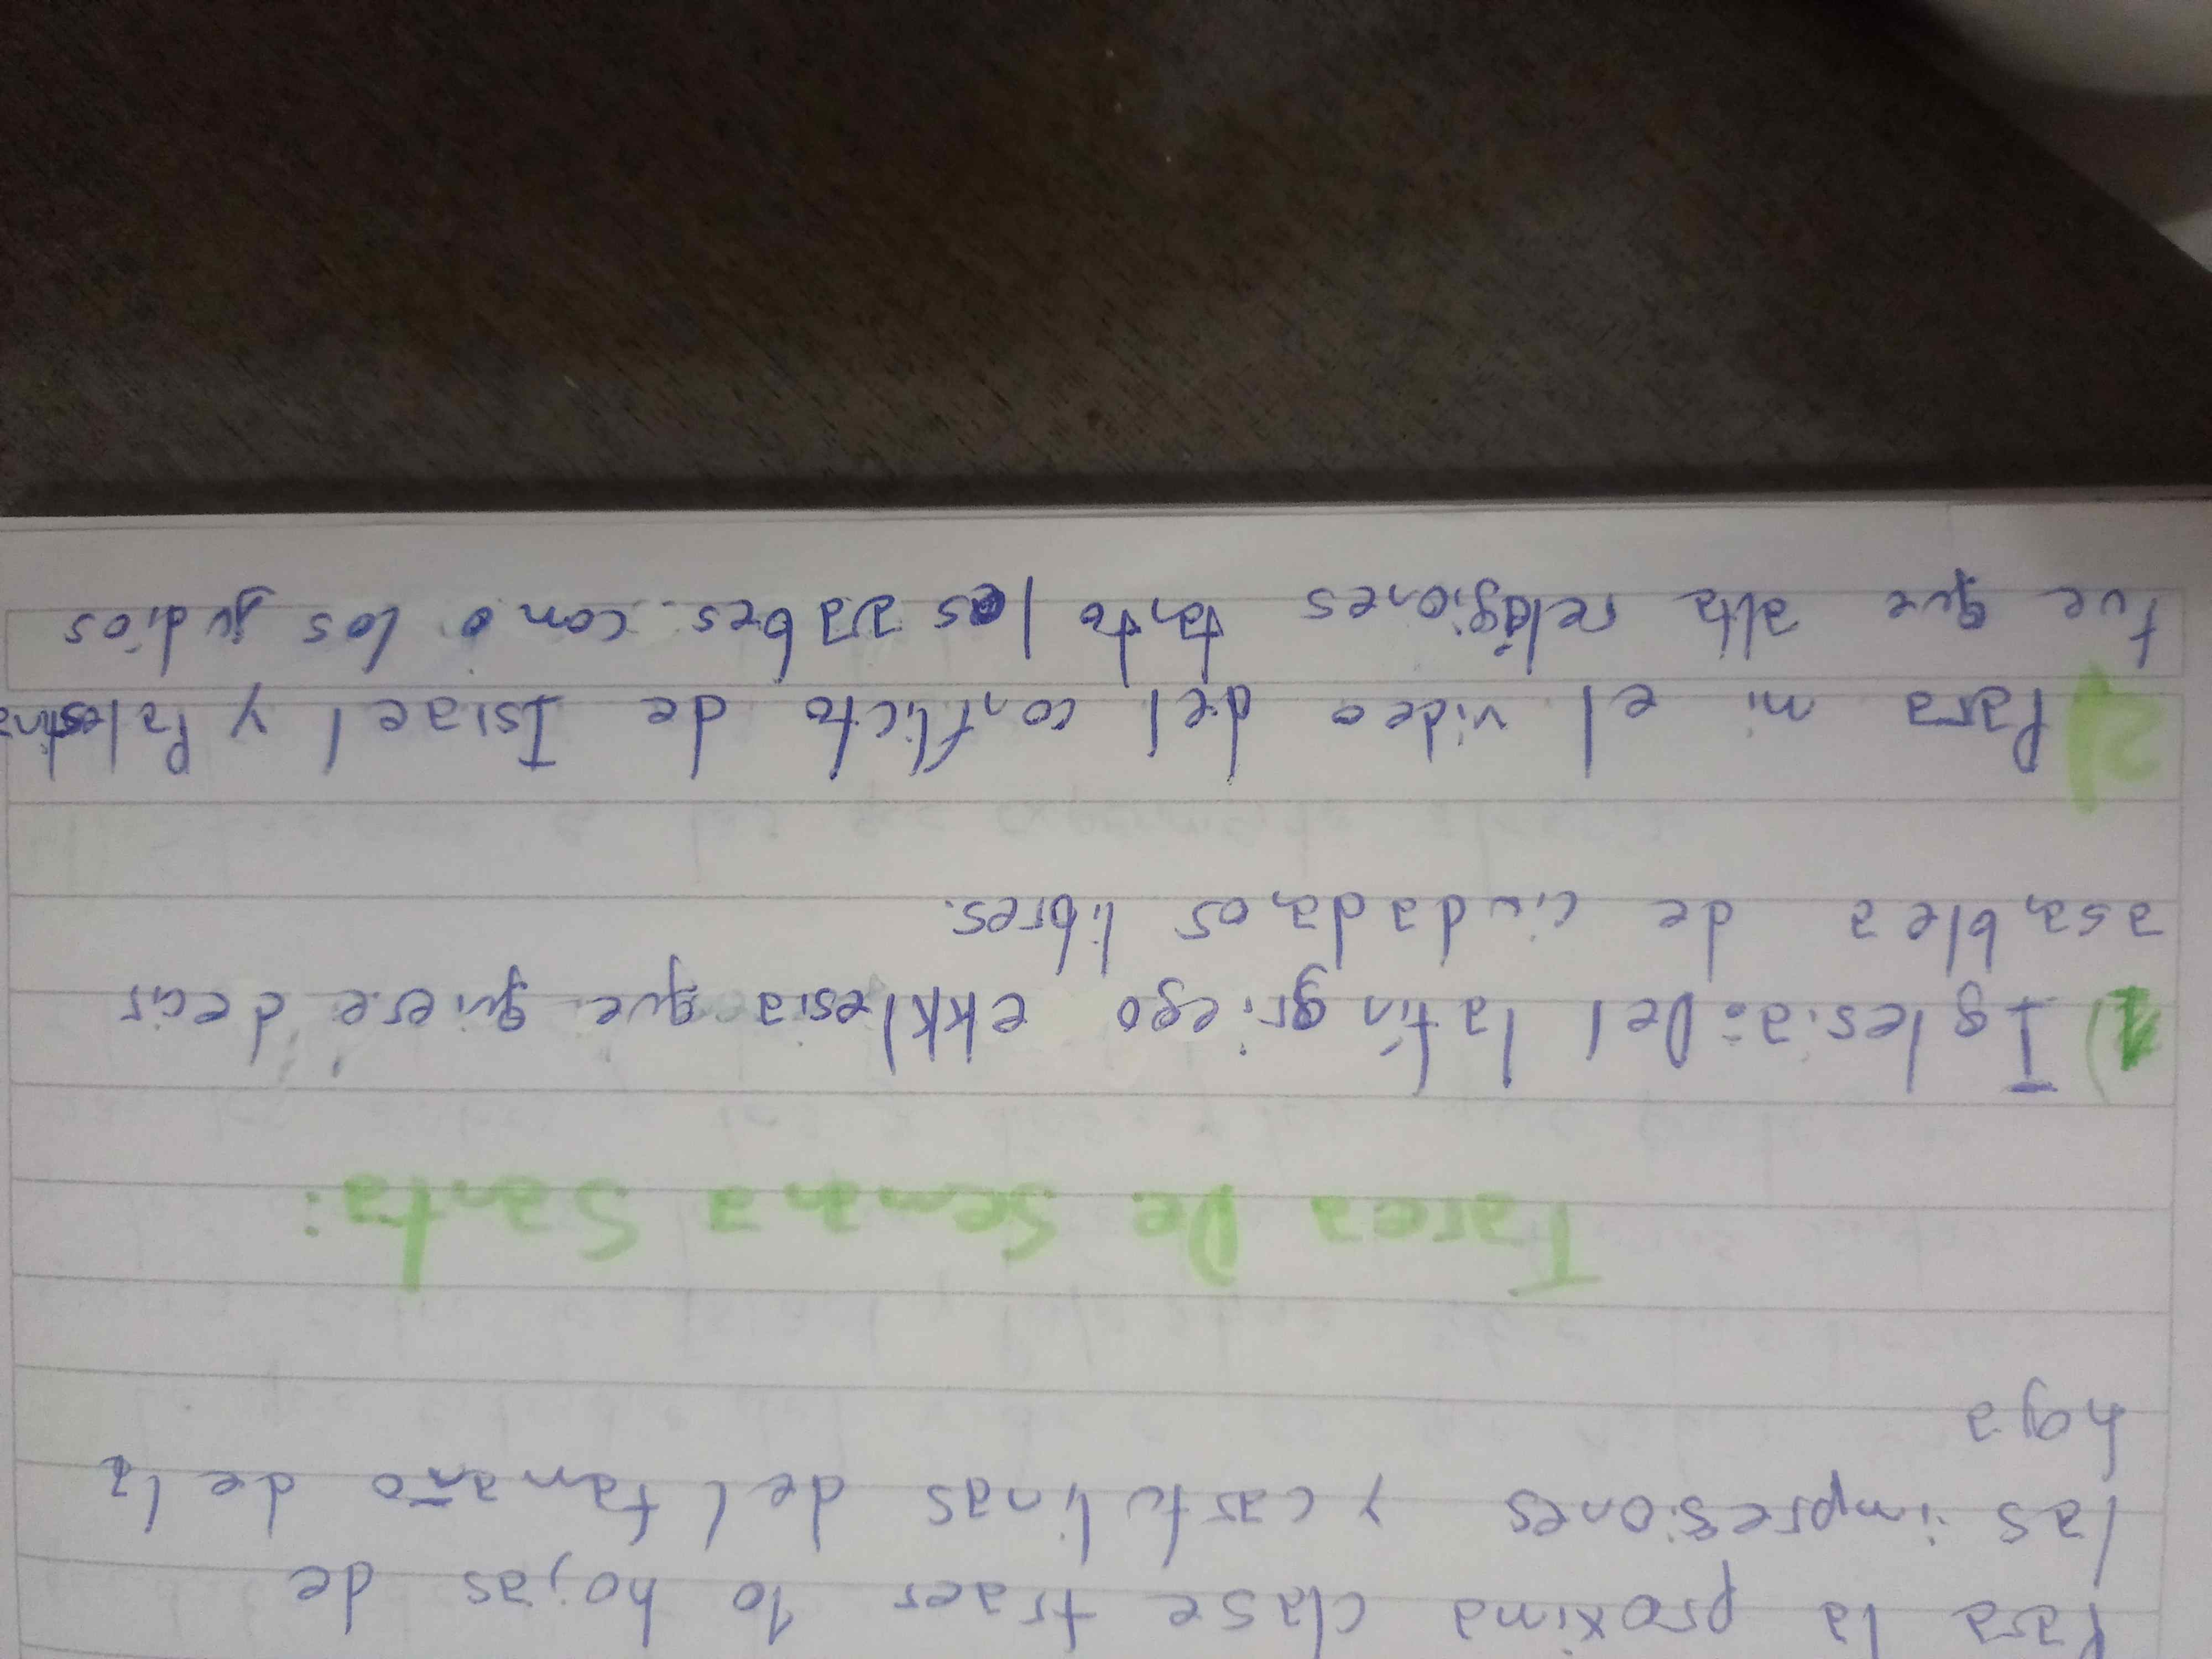 Para la proxima clase traer 10 hojas de
las impresiones y cartulinas del tamaño de la
hoga
Tarea De Semana Santa:
1) Iglesia: Del latín griego ekklesia que quiere decir
asablea de ciudadanos libres.
2) Para mi el video del conflicto de Israel y Palestina
fue que alta religiones tanto los arabes como los judios